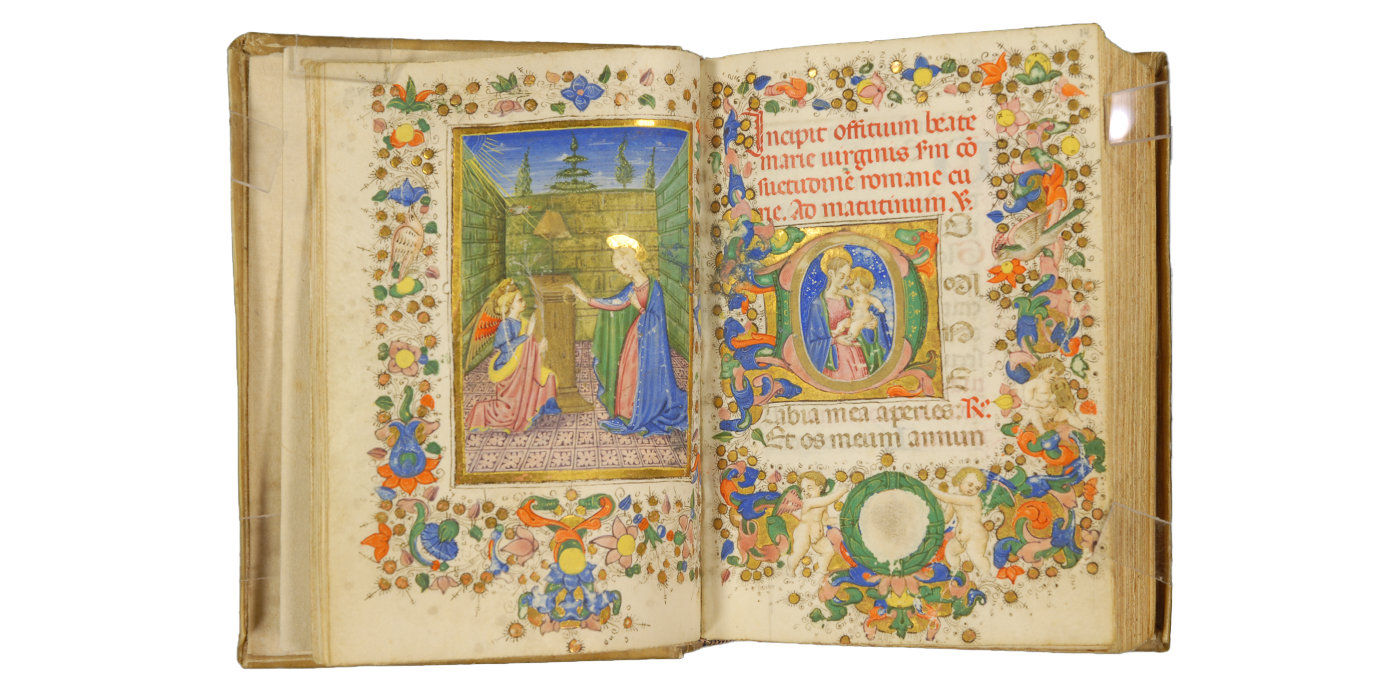 Incipit offitium beate
marie uirginis s'm cō
suetudinē romane cu
rie. Ad matutinum. ℟.
D
O
N
E
Labia mea aperies. ℟.
Et os meum annun